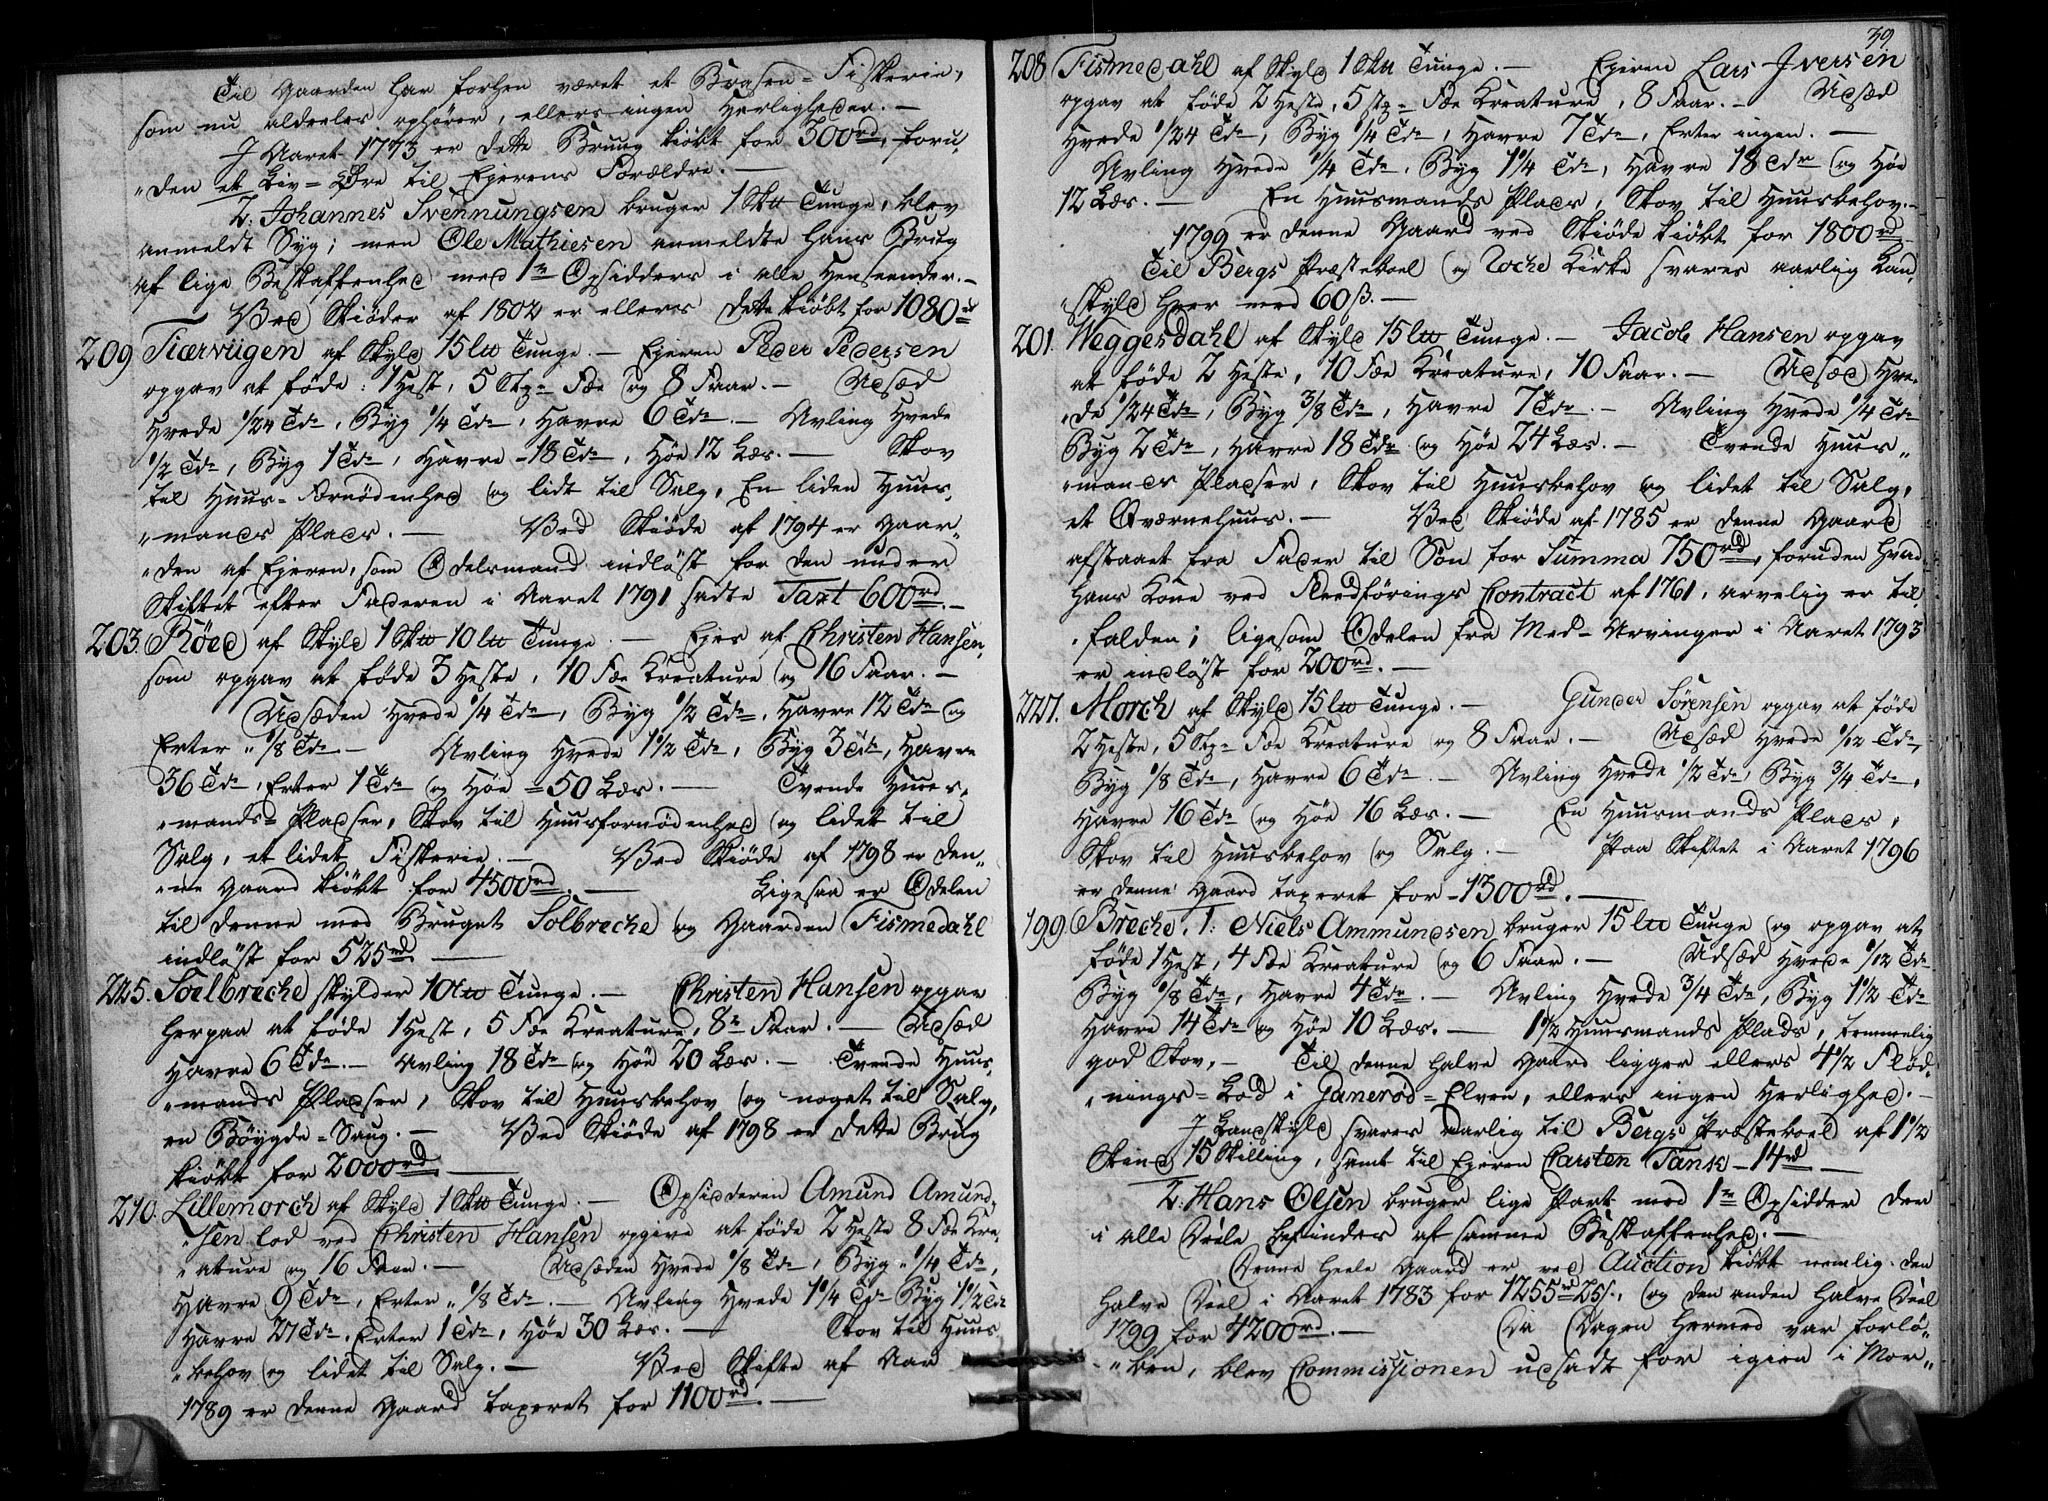 Til Gaarden har forhen været et Brasen-Fiskerie,
som nu aldeeles ophører, ellers ingen Herligheder.—
I Aaret 1773 er dette Bruug kiøbt for 300rd, foru„
„den et Liv-Øre til Ejerens Forældre.—
2. Johannes Svennungsen bruger 1 Sk℔ Tunge, blev
anmeldt Syg; men Ole Mathiesen anmeldte hans Brug
af lige Beskaffenhed med 1te Opsidders i alle Henseender.—
Ved Skiøder af 1802 er ellers dette kiøbt for 1080rd
209 Tiærviigen af Skyld 15 l℔ Tunge.— Ejeren Peder Pedersen
opgav at føde: 1 Hest, 5 Stk- Fæe og 8 Faar.— Udsæd
Hvede 1/24 Tde, Byg 1/4 Tde, Havre 6 Tdr.— Avling Hvede
1/2 Tde, Byg 1 Tde, Havre -18 Tdr, Høe 12 Læs.— Skov
til Huus-Fornødenhed og lidt til Salg, En liden Huus„
„mands Plads.— Ved Skiøde af 1794 er Gaar„
„den af Ejeren, som Odelsmand indløst for den under
Skiftet efter Faderen i Aaret 1791 sadte Taxt 600rd.—
203. Röed af Skyld 1 Sk℔ 10 l℔ Tunge.— Ejes af Christen Hansen,
som opgav at føde 3 Heste, 10 Fæe Kreature og 16 Faar.—
Udsæden Hvede 1/4 Tde, Byg 1/2 Tde, Havre 12 Tdr og
Erter „ 1/8 Tde— Avling Hvede 1 1/2 Tde, Byg 3 Tdr, Havre
36 Tdr, Erter 1 Tde og Høe =50 Læs.— Tvende Huus„
„mands-Pladser, Skov til Huusfornødenhed og lidet til
Salg, et lidet Fiskerie.— Ved Skiøde af 1798 er den„
„ne Gaard kiøbt for 4500rd.— Ligesaa er Odelen
til denne med Bruget Solbreche og Gaarden Fismedahl
indløst for 525rd.—
225. Soelbreche skylder 10 l℔ Tunge.— Christen Hansen opgav
herpaa at føde 1 Hest, 5 Fæe Kreature, 8te Faar.— Udsæd
Havre 6 Tdr.— Avling 18 Tdr og Høe 20 Læs.— Tvende Huus„
„mands Pladser, Skov til Huusbehov og noget til Salg,
en Bøygde-Saug.— Ved Skiøde af 1798 er dette Brug
kiøbt for 2000rd.—
210. Lillemorch af Skyld 1 Sk℔ Tunge.— Opsidderen Amund Amund„
„sen lod ved Christen Hansen opgive at føde 2 Heste 8 Fæe Kre„
„ature og 16 Faar.— Udsæden Hvede 1/8 Tde, Byg „ 1/4 Tde,
Havre 9 Tdr, Erter „ 1/8 Tde.— Avling Hvede 1 1/4 Tde Byg 1 1/2 Tde
Havre 27 Tdr, Erter 1 Tde, Høe 30 Læs.— Skov til Huus„
„behov og lidet til Salg.— Ved Skifte af Aar
1789 er denne Gaard taxeret for 1100rd.—
39.
208 Fismedahl af Skyld 1 Sk℔ Tunge.— Ejeren Lars Iversen
opgav at føde 2 Heste, 5 stk- Fæe Kreature, 8 Faar.— Udsæd
Hvede 1/24 Tde, Byg 1/4 Tde, Havre 7 Tdr, Erter ingen.—
Avling Hvede 1/4 Tde, Byg 1 1/4 Tde, Havre 18 Tdr og Høe
12 Læs.— En Huusmands Plads, Skov til Huusbehov.—
1799 er denne Gaard ved Skiøde kiøbt for 1800rd—
Til Bergs Præsteboel og Kirke svares aarlig Land„
„skyld hver med 60 ß.—
201. Weggesdahl af Skyld 15 l℔ Tunge.— Jacob Hansen opgav
at føde 2 Heste, 10 Fæe Kreature, 10 Faar.— Udsæd Hve„
„de 1/24 Tde, Byg 3/8 Tde, Havre 7 Tdr.— Avling Hvede 1/4 Tde
Byg 2 Tdr, Havre 18 Tdr og Høe 24 Læs.— Tvende Huus„
„mands Pladser, Skov til Huusbehov og lidet til Salg,
et Qværnehuus.— Ved Skiøde af 1785 er denne Gaard
afstaaet fra Fader til Søn for Summa 750rd, foruden hvad
hans Kone ved Fledførings Contract af 1761, arvelig er til„
„falden; ligesom Odelen fra Med-Arvinger i Aaret 1793
er indløst for 200rd.—
227. Morch af Skyld 15 l℔ Tunge.— Gunder Sørensen opgav at føde
2 Heste, 5 Stk- Fæe Kreature og 8 Faar.— Udsæd Hvede 1/12 Tde,
Byg 1/8 Tde, Havre 6 Tdr.— Avling Hvede 1/2 Tde, Byg 3/4 Tde,
Havre 16 Tdr og Høe 16 Læs.— En Huusmands Plads,
Skov til Huusbehov og Salg.— Paa Skiftet i Aaret 1796
er denne Gaard taxeret for -1300rd.—
199 Breche. 1: Niels Ammundsen bruger 15 l℔ Tunge og opgav at
føde 1 Hest, 4 Fæe Kreature og 6 Faar.— Udsæd Hvede 1/12 Tde
Byg 1/8 Tde, Havre 4 Tdr.— Avling Hvede 3/4 Tde, Byg 1 1/2 Tde
Havre 14 Tdr og Høe 10 Læs.— 1 1/2 Huusmands Plads, temmelig
god Skov,— Til denne halve Gaard ligger ellers 4 1/2 Flød„
„nings-Lod i Ganerød-Elven, ellers ingen Herlighed.—
I Landskyld svares aarlig til Bergs Præsteboel af 1 1/2
Skind 15 Skilling, samt til Ejeren Carsten Tank -14rd—
2. Hans Olsen bruger lige Part med 1te Opsidder der
i alle Deele befindes af samme Beskaffenhed.—
Denne heele Gaard er ved Auction kiøbt nemlig: den
halve Deel i Aaret 1783 for 1255rd 25 s., og den anden halve Deel
1799 for 4200rd.— Da Dagen hermed var forlø„
„ben, blev Commissionen udsadt for igien i Mor„